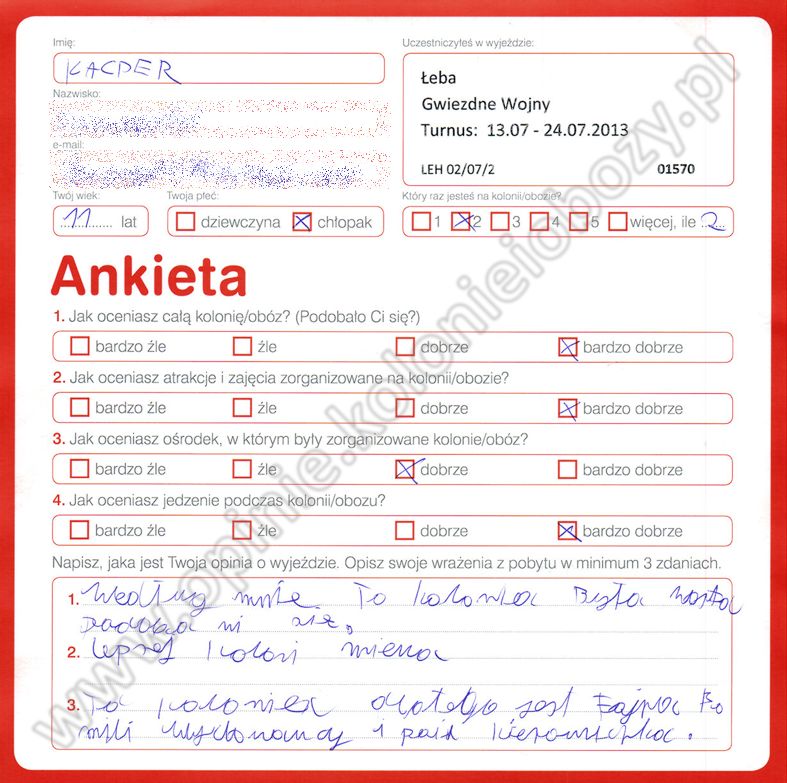 Imię:
KACPER
Uczestniczyłeś w wyjeździe:
Łeba
Gwiezdne Wojny
Turnus: 13.07 - 24.07.2013
LEH 02/07/2 01570
Nazwisko:
e-mail:
Twój wiek:
11 lat
Twoja płeć:
dziewczyna chłopak
Który raz jesteś na kolonii/obozie?
1 2 3 4 5 więcej, ile 2
Ankieta
1. Jak oceniasz całą kolonię/obóz? (Podobało Ci się?)
bardzo źle źle dobrze bardzo dobrze
2. Jak oceniasz atrakcje i zajęcia zorganizowane na kolonii/obozie?
bardzo źle źle dobrze bardzo dobrze
3. Jak oceniasz ośrodek, w którym były zorganizowane kolonie/obóz?
bardzo źle źle dobrze bardzo dobrze
4. Jak oceniasz jedzenie podczas kolonii/obozu?
bardzo źle źle dobrze bardzo dobrze
Napisz, jaka jest Twoja opinia o wyjeździe. Opisz swoje wrażenia z pobytu w minimum 3 zdaniach.
1. Według mnie To kolonia
mi się.
2. lepszej koloni
3. Ta kolonia dlatego jest Fajna Bo
mili i pani kierowniczka.
www.opinie.kolonieiobozy.pl